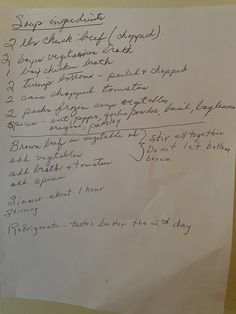 Soup ingredients
2 lbs chuck beef (chopped)
2 boxes vegetarian broth
1 box chicken broth
2 turnip bottoms - peeled & chopped
2 cans chopped tomatoes
2 pkgs frozen soup vegetables
Spices - salt, pepper, garlic powder, basil, bayleaves
oregano, parsley
Brown beef in vegetable oil
add vegetables
add broth & tomatoes
add spices
Stir all together
Do not let bottom
brown
Simmer about 1 hour
Stirring
Refrigerate - tastes better the 2nd day